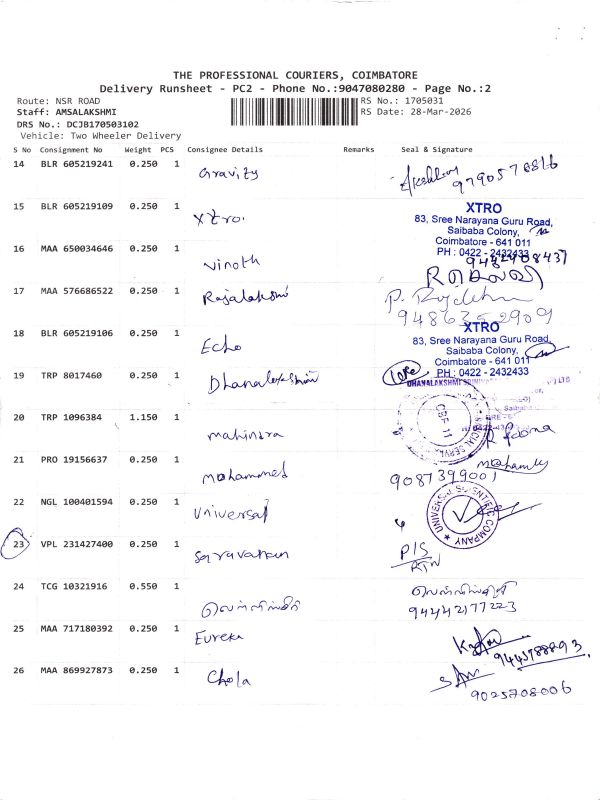 THE PROFESSIONAL COURIERS, COIMBATORE
Delivery Runsheet - PC2 - Phone No.:9047080280 - Page No.:2
Route: NSR ROAD RS No.: 1705031
Staff: AMSALAKSHMI RS Date: 28-Mar-2026
DRS No.: DCJB170503102
Vehicle: Two Wheeler Delivery
S No Consignment No Weight PCS Consignee Details Remarks Seal & Signature
14 BLR 605219241 0.250 1 Gravity
9790570816
15 BLR 605219109 0.250 1 Xtro.
XTRO
83, Sree Narayana Guru Road,
Saibaba Colony,
Coimbatore - 641 011
PH : 0422 - 2432433
16 MAA 650034646 0.250 1 Vinoth
17 MAA 576686522 0.250 1 Rajalakshmi
9486352909
18 BLR 605219106 0.250 1 Echo
XTRO
83, Sree Narayana Guru Road,
Saibaba Colony,
Coimbatore - 641 011
PH : 0422 - 2432433
19 TRP 8017460 0.250 1 Dhanalakshmi
20 TRP 1096384 1.150 1 mahindra
CBF 11
21 PRO 19156637 0.250 1 mohammed
9087399001
22 NGL 100401594 0.250 1 Universal
UNIVERSAL SCIENTIFIC COMPANY
23 VPL 231427400 0.250 1 Saravanan
P/S
RTN
24 TCG 10321916 0.550 1
94442177223
25 MAA 717180392 0.250 1 Eureka
26 MAA 869927873 0.250 1 Chola
9025708006